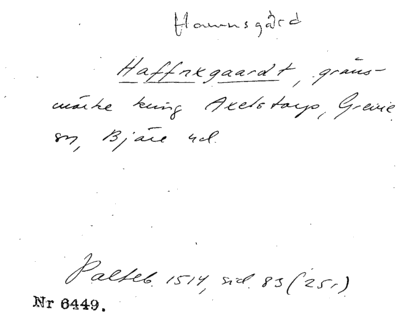 Hamnsgård
Haffnxgaardt, gräns-
märke kring Axelstorp, Grevie
sn, Bjäre hd.
Palteb. 1514, sid. 83 (25r)
Nr 6449.